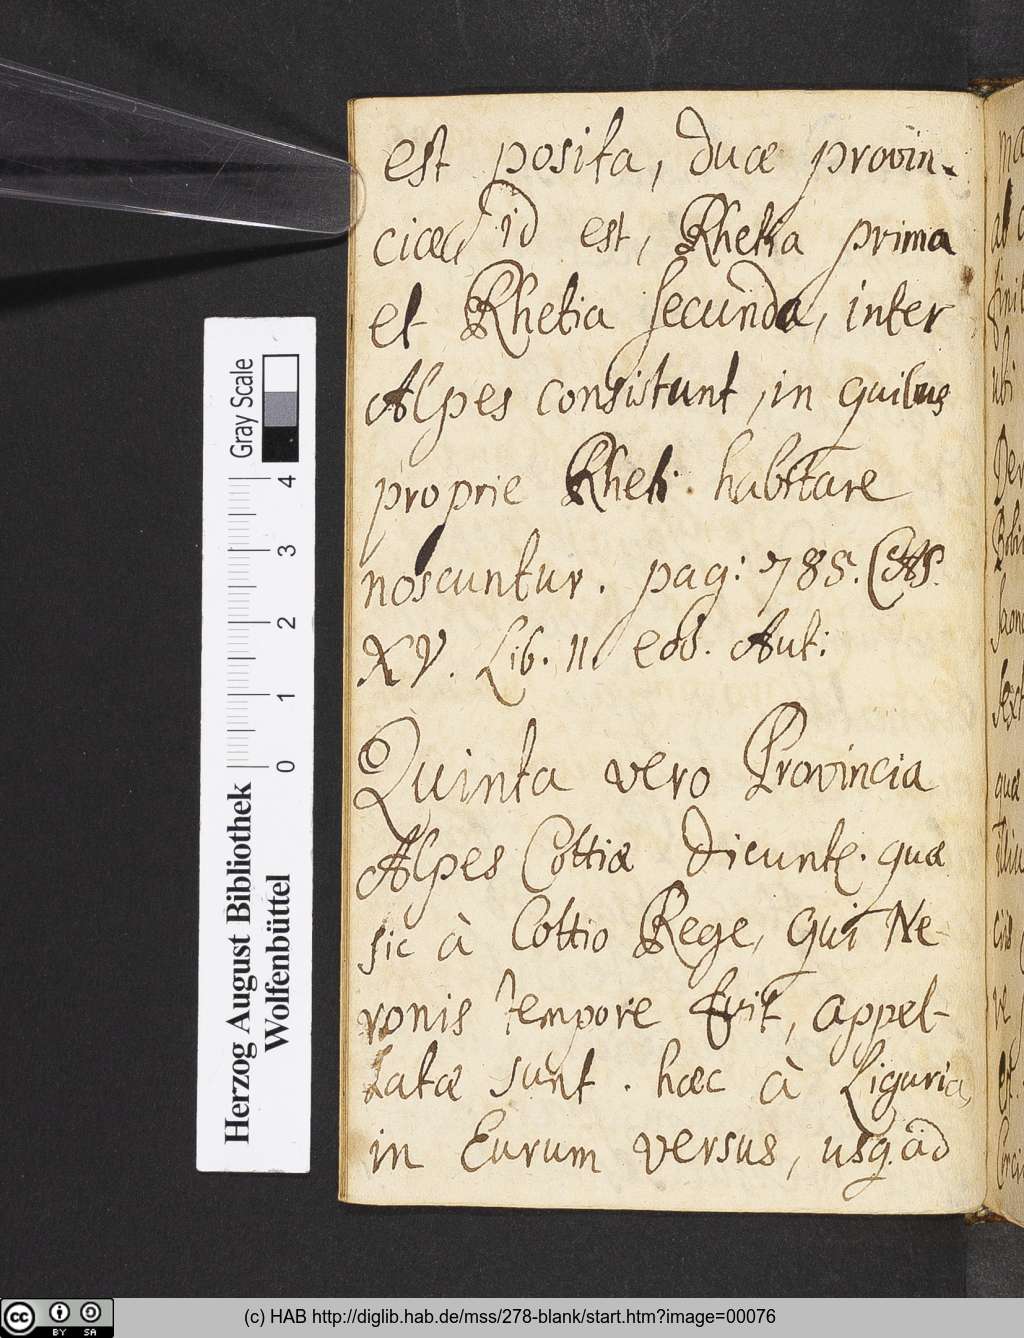 est posita, duæ provin-
ciæ id est, Rhetia prima
et Rhetia secunda, inter
Alpes consistunt, in quibus
proprie Rheti habitare
noscuntur. pag: 785.
XV. Lib. II. eod. Aut:
Quinta vero Provincia
Alpes Cottiæ dicunt. quæ
sic à Cottio Rege, qui Ne-
ronis tempore fuit, appel-
latæ sunt. hæc à Liguria
in Eurum versus, usq. ad
Gray Scale
4 3 2 1 0
Herzog August Bibliothek
Wolfenbüttel
cc BY SA
(c) HAB http://diglib.hab.de/mss/278-blank/start.htm?image=00076